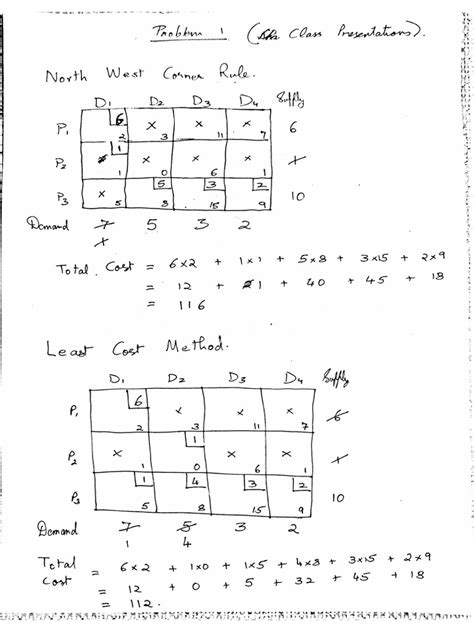 Problem 1 (Class Presentations).
North West Corner Rule.
D1 D2 D3 D4 Supply
P1 6 2 x 3 x 11 x 7 6
P2 1 1 x 0 x 6 x 1 1
P3 x 5 5 8 3 15 2 9 10
Demand 7 5 3 2
1
Total Cost = 6x2 + 1x1 + 5x8 + 3x15 + 2x9
= 12 + 1 + 40 + 45 + 18
= 116
Least Cost Method.
D1 D2 D3 D4 Supply
P1 6 2 x 3 x 11 x 7 6
P2 x 1 1 0 x 6 x 1 1
P3 1 5 4 8 3 15 2 9 10
Demand 7 5 3 2
1 4
Total Cost = 6x2 + 1x0 + 1x5 + 4x8 + 3x15 + 2x9
= 12 + 0 + 5 + 32 + 45 + 18
= 112.